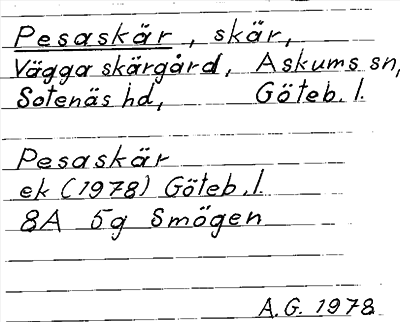 Pesaskär, skär,
Vägga skärgård, Askums sn,
Sotenäs hd, Göteb. l.
Pesaskär
ek (1978) Göteb. l.
8A 5g Smögen
A.G. 1978